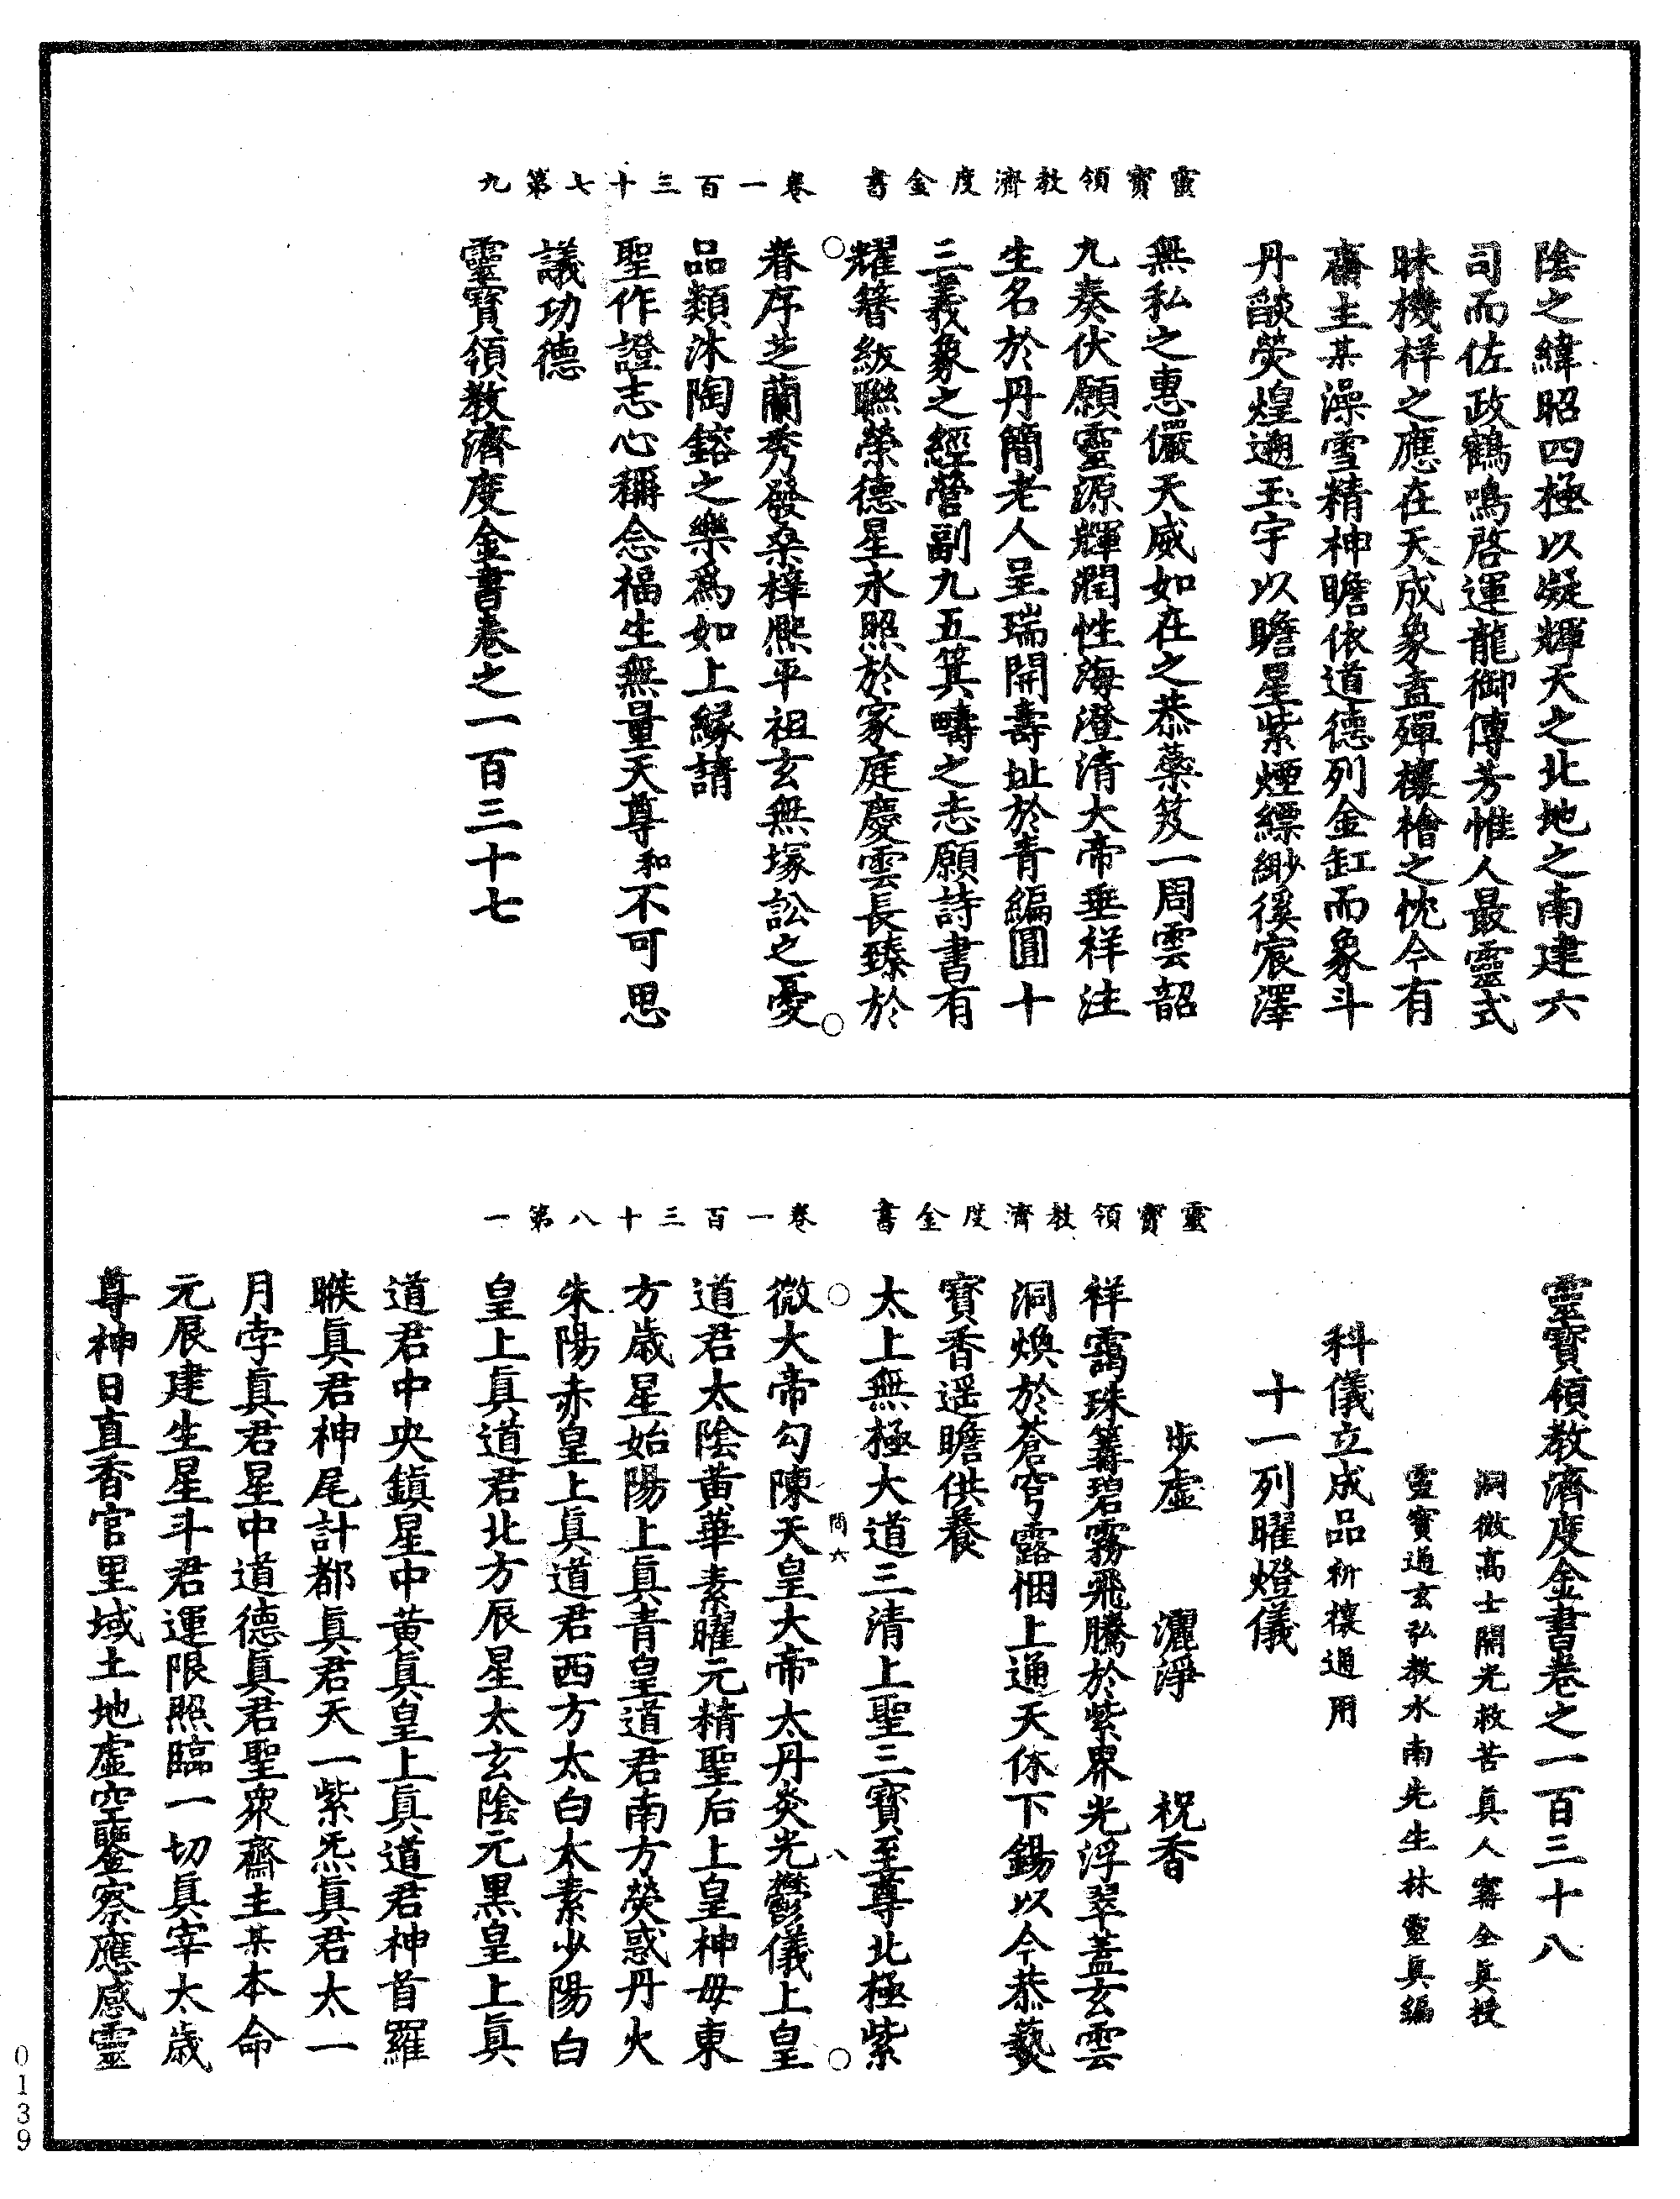 靈寶領教濟度金書 卷一百三十七第九
陰之緯昭四極以凝輝天之北地之南建六
司而佐政鶴鳴啓運龍御傳芳惟人最靈式
昧機祥之應在天成象盍殫禳襘之忱今有
齋主某澡雪精神瞻依道德列金缸而象斗
丹燄熒煌遡玉宇以瞻星紫煙縹緲徯宸澤
無私之惠儼天威如在之恭蘂笈一周雲韶
九奏伏願靈源輝潤性海澄清大帝垂祥注
生名於丹簡老人呈瑞開壽址於青編圓十
三義象之經營副九五箕疇之志願詩書有
耀簪紱聯榮德星永照於家庭慶雲長臻於
眷序芝蘭秀發桑梓熈平祖玄無塚訟之憂
品類沐陶鎔之樂爲如上緣請
聖作證志心稱念福生無量天尊和不可思
議功德
靈寶領教濟度金書卷之一百三十七
靈寶領教濟度金書 卷一百三十八第一
靈寶領教濟度金書卷之一百三十八
洞微高士開光救苦真人甯全真授
靈寶通玄弘教水南先生林靈真編
科儀立成品祈禳通用
十一列曜燈儀
步虛 灑淨 祝香
祥靄珠篝碧霧飛騰於紫界光浮翠蓋玄雲
洞煥於蒼穹露悃上通天休下錫以今恭爇
寶香遥瞻供養
太上無極大道三清上聖三寶至尊北極紫
微大帝勾陳天皇大帝太丹炎光鬱儀上皇
道君太陰黃華素曜元精聖后上皇神母東
方歲星始陽上真青皇道君南方熒惑丹火
朱陽赤皇上真道君西方太白太素少陽白
皇上真道君北方辰星太玄陰元黑皇上真
道君中央鎮星中黃真皇上真道君神首羅
睺真君神尾計都真君天一紫炁真君太一
月孛真君星中道德真君聖衆齋主某本命
元辰建生星斗君運限照臨一切真宰太歲
尊神日直香官里域土地虛空鑒察應感靈
問六
八
0139